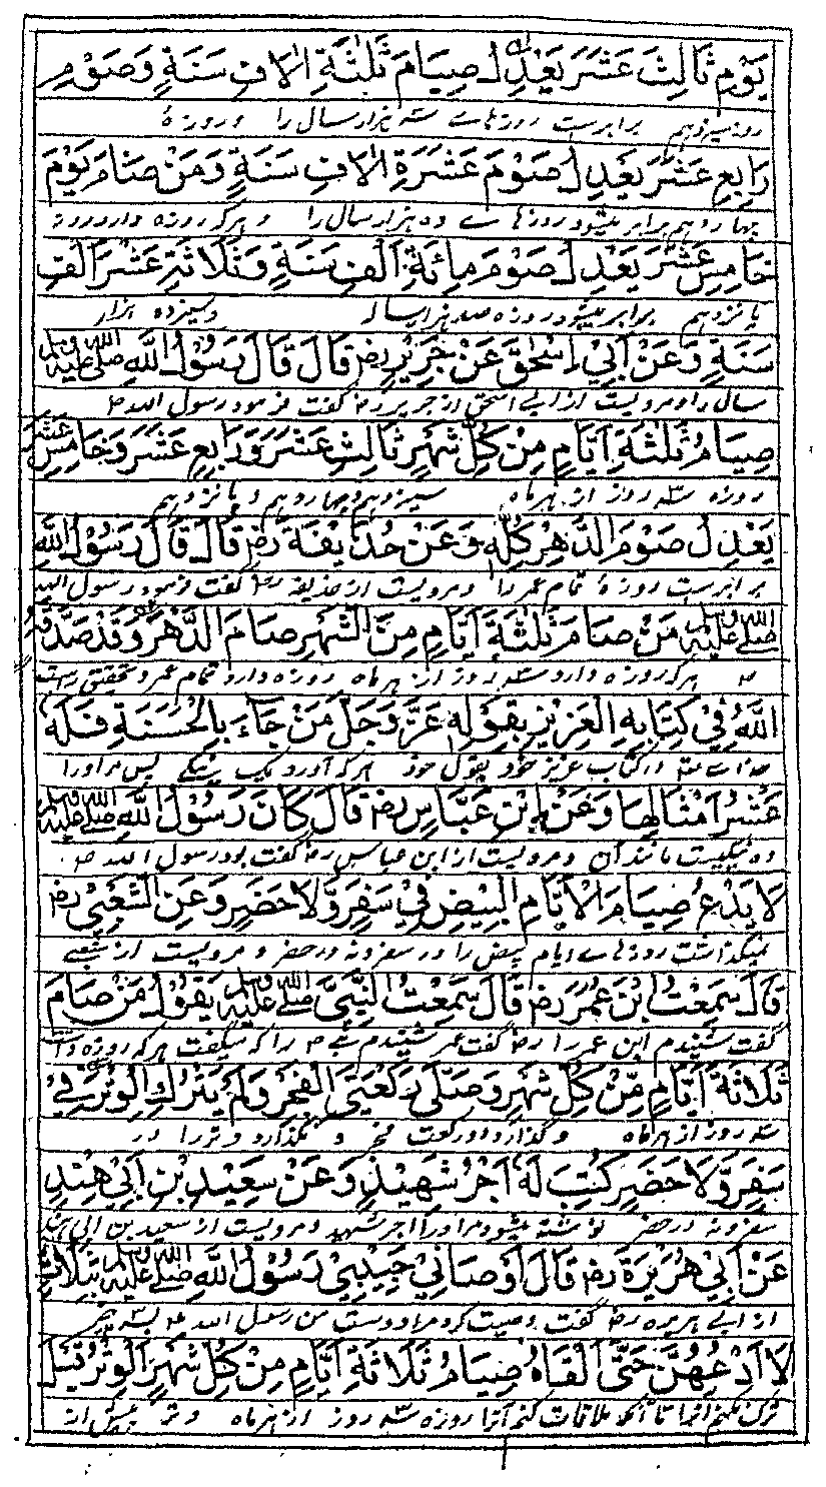 يَوْمِ ثَالِثَ عَشَرَ يَعْدِلُ صِيَامَ ثَلٰثَةِ اٰلَافِ سَنَةٍ وَصَوْمِ
روز سیزدہم برابرست روزہاے سہ ہزار سال را و روزۂ
رَابِعِ عَشَرَ يَعْدِلُ صَوْمَ عَشَرَةِ اٰلَافِ سَنَةٍ وَمَنْ صَامَ يَوْمَ
چہاردہم برابر میشود روزہاے دہ ہزار سال را و ہرکہ روزہ دارد روز
خَامِسِ عَشَرَ يَعْدِلُ صَوْمَ مِائَةِ اَلْفِ سَنَةٍ وَثَلَاثَةِ عَشَرَ اَلْفِ
پانزدہم برابر میشود روزہ صد ہزار سال و سیزدہ ہزار
سَنَةٍ وَعَنْ اَبِيْ اِسْحٰقَ عَنْ جَرِيْرٍ رض قَالَ قَالَ رَسُوْلُ اللّٰهِ صلى الله عليه وسلم
سال را و مرویست از ابی اسحق از جریر رض گفت فرمود رسول اللہ ص
صِيَامُ ثَلٰثَةِ اَيَّامٍ مِنْ كُلِّ شَهْرٍ ثَالِثِ عَشَرَ وَرَابِعِ عَشَرَ وَخَامِسِ عَشَرَ
روزہ سہ روز از ہر ماہ سیزدہم و چہاردہم و پانزدہم
يَعْدِلُ صَوْمَ الدَّهْرِ كُلِّهٖ وَعَنْ حُذَيْفَةَ رض قَالَ قَالَ رَسُوْلُ اللّٰهِ
برابرست روزۂ تمام عمر را و مرویست از حذیفہ رض گفت فرمود رسول اللہ
صلى الله عليه وسلم مَنْ صَامَ ثَلٰثَةَ اَيَّامٍ مِنَ الشَّهْرِ صَامَ الدَّهْرَ وَقَدْ صَدَّقَهُ
ص ہرکہ روزہ دارد سہ روز از ہر ماہ روزہ دارد تمام عمر و تحقیق راست
اللّٰهُ فِيْ كِتَابِهِ الْعَزِيْزِ بِقَوْلِهٖ عَزَّ وَجَلَّ مَنْ جَاءَ بِالْحَسَنَةِ فَلَهٗ
در کتاب عزیز خود بقول خود ہرکہ آورد یک نیکے پس مر او را
عَشْرُ اَمْثَالِهَا وَعَنْ اِبْنِ عَبَّاسٍ رض قَالَ كَانَ رَسُوْلُ اللّٰهِ صلى الله عليه وسلم
دہ نیکیست مانند آن و مرویست از ابن عباس رض گفت بود رسول اللہ ص
لَا يَدَعُ صِيَامَ الْاَيَّامِ الْبِيْضِ فِيْ سَفَرٍ وَّلَا حَضَرٍ وَعَنِ الشَّعْبِيِّ رض
نمیگذاشت روزہاے ایام بیض را در سفر و نہ در حضر و مرویست از شعبی
قَالَ سَمِعْتُ ابْنَ عُمَرَ رض قَالَ سَمِعْتُ النَّبِيَّ صلى الله عليه وسلم يَقُوْلُ مَنْ صَامَ
گفت شنیدم ابن عمر را رض گفت عمر شنیدم نبی ص را کہ میگفت ہرکہ روزہ داشت
ثَلَاثَةَ اَيَّامٍ مِّنْ كُلِّ شَهْرٍ وَصَلّٰى رَكْعَتَيِ الْفَجْرِ وَلَمْ يَتْرُكِ الْوِتْرَ فِيْ
سہ روز از ہر ماہ و گذارد دو رکعت فجر و نگذارد وتر را در
سَفَرٍ وَّلَا حَضَرٍ كُتِبَ لَهٗ اَجْرُ شَهِيْدٍ وَعَنْ سَعِيْدِ بْنِ اَبِيْ هِنْدٍ
سفر و نہ در حضر نوشتہ میشود مر او را اجر شہید و مرویست از سعید بن ابی ہند
عَنْ اَبِيْ هُرَيْرَةَ رض قَالَ اَوْصَانِيْ حَبِيْبِيْ رَسُوْلُ اللّٰهِ صلى الله عليه وسلم بِثَلَاثٍ
از ابی ہریرہ رض گفت وصیت کرد مرا دوست من رسول اللہ ص بسہ چیز
لَا اَدَعُهُنَّ حَتّٰى اَلْقَاهُ صِيَامُ ثَلَاثَةِ اَيَّامٍ مِنْ كُلِّ شَهْرٍ الْوِتْرُ قَبْلَ
ترک نکنم آنہا را تا آنکہ ملاقات کنم آنرا روزہ سہ روز از ہر ماہ وتر پیش از